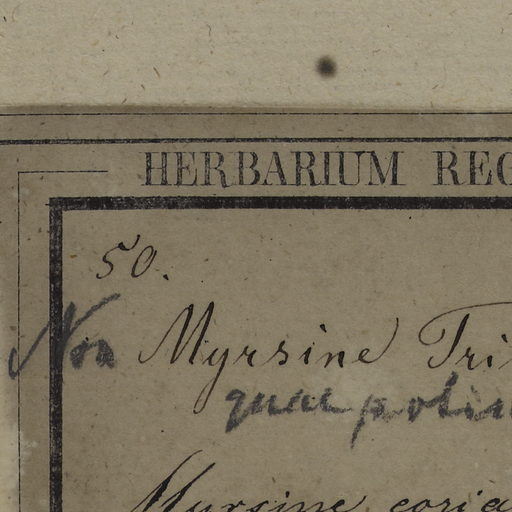 HERBARIUM REG
50.
Non Myrsine Tri
quae potiu
Myrsine coria